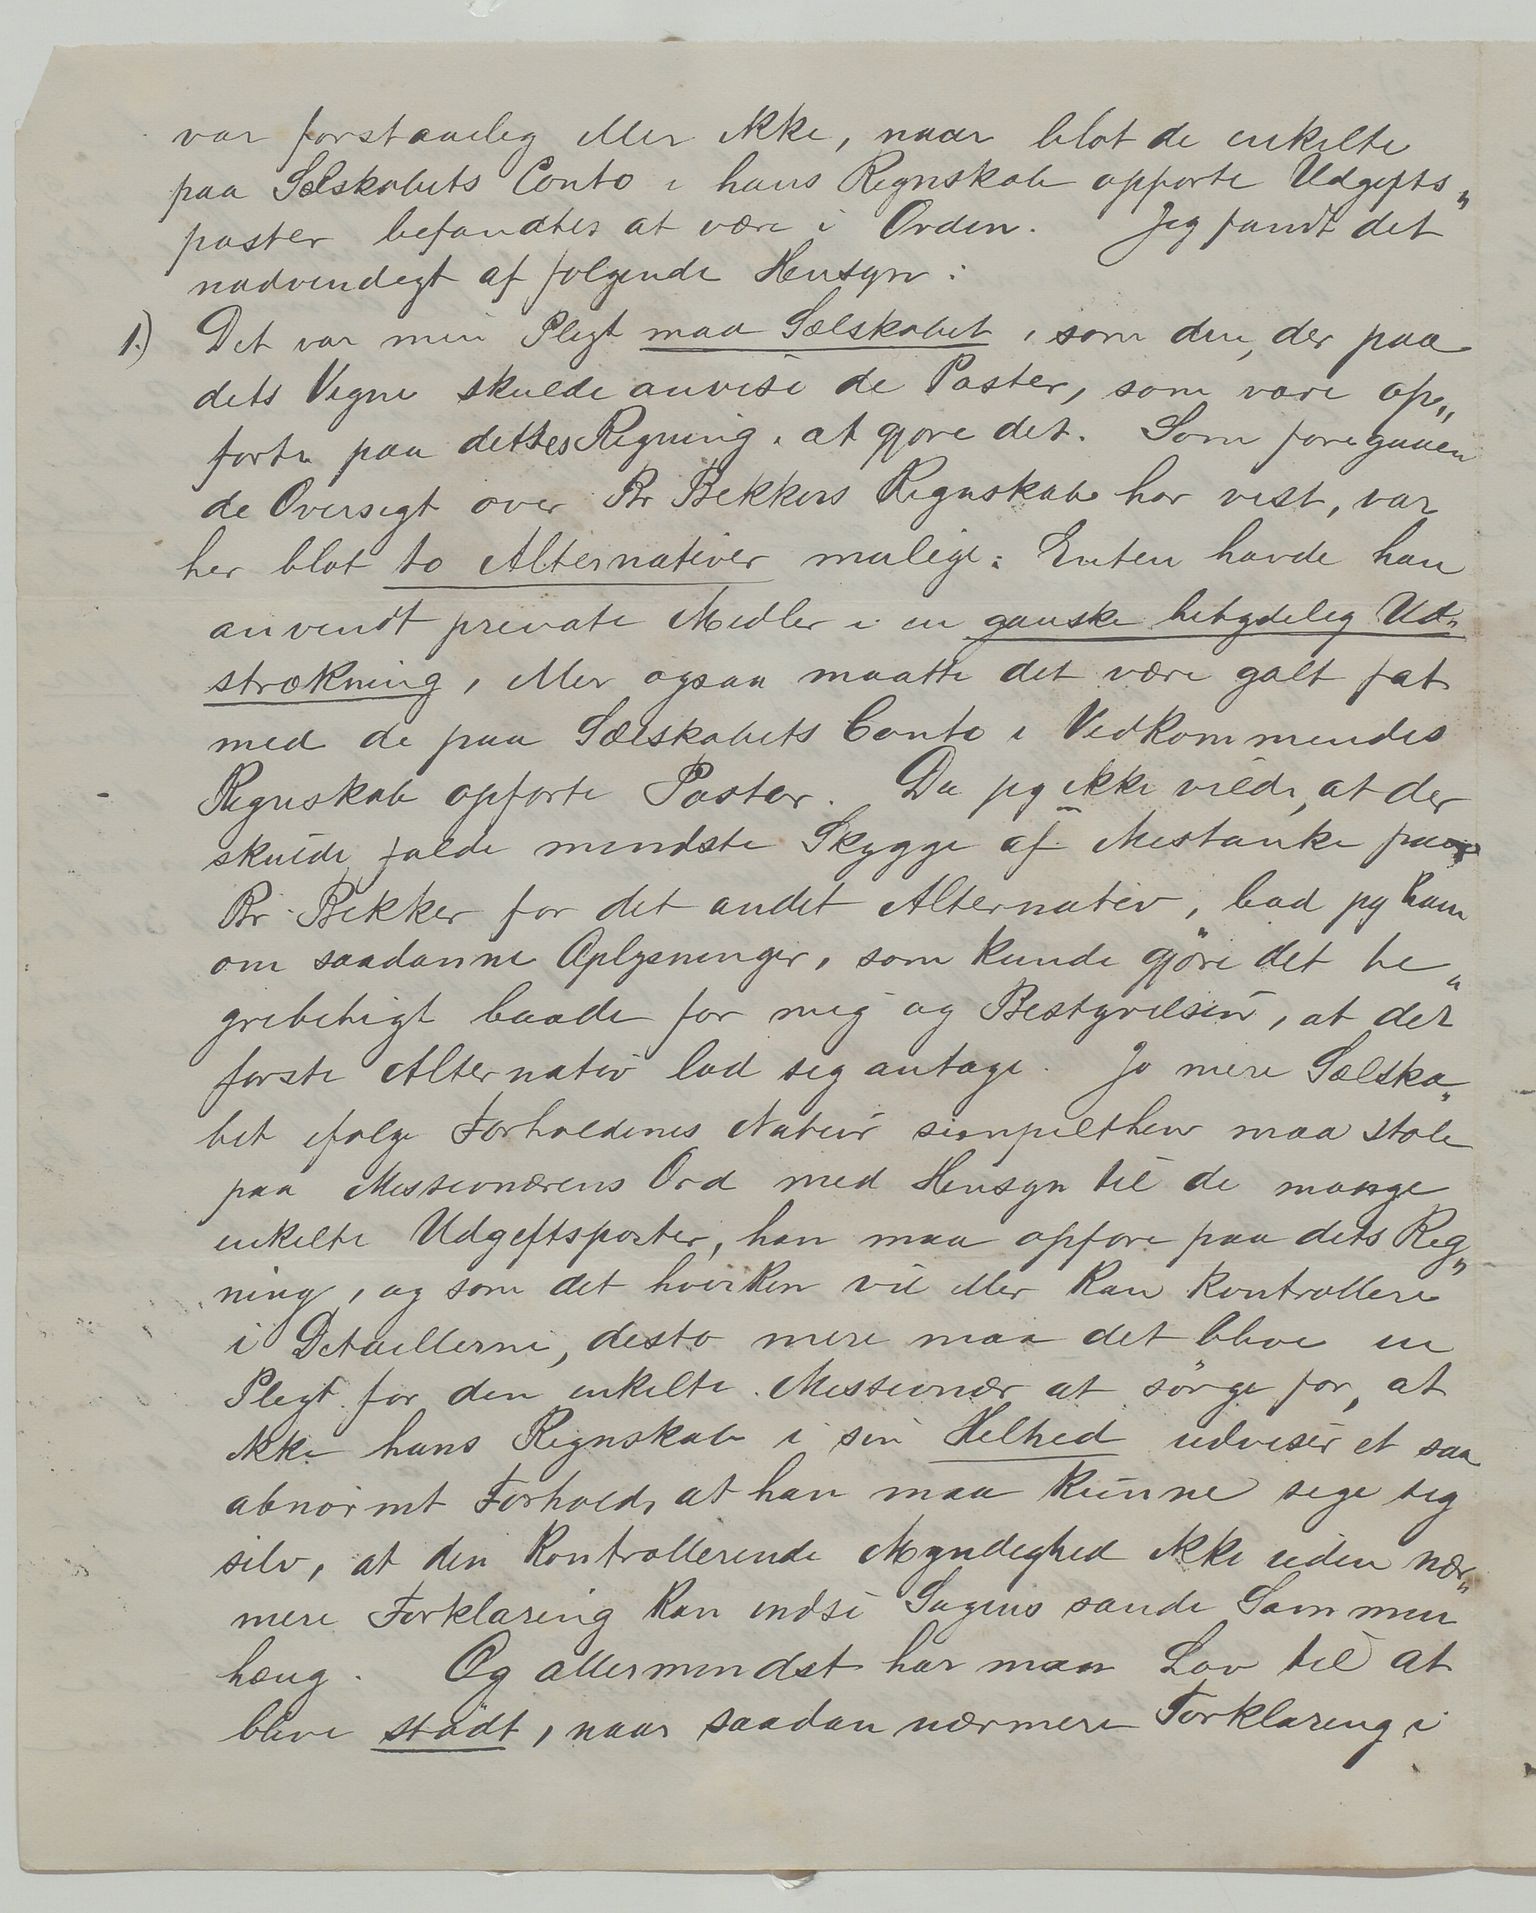 var forstaaelig eller ikke, naar blot de enkelte
paa Selskabets Conto i hans Regnskab opførte Udgifts„
poster befandtes at være i Orden. Jeg fandt det
nødvendigt af følgende Hensyn:
1.) Det var min Pligt maa Selskabet, som den, der paa
dets Vegne skulde anvise de Poster, som vare op„
førte paa dettes Regning, at gjøre det. Som foregaaen
de Oversigt over Br Bekkers Regnskab har vist, var
her blot to Alternativer mulige: Enten havde han
anvendt private Midler i en ganske betydelig Ud„
strækning, eller ogsaa maatte det være galt fat
med de paa Selskabets Conto i Vedkommendes
Regnskab opførte Poster. Da jeg ikke vilde, at der
skulde falde mindste Skygge af Mistanke paa
Br. Bekker for det andet Alternativ, bad jeg ham
om saadanne Oplysninger, som kunde gjöre det be„
gribeligt baade for mig og Bestyrelsen, at det
første Alternativ lod sig antage. Jo mere Selska„
bet ifølge Forholdenes Natur simpelthen maa stole
paa Missionærens Ord med Hensyn til de mange
enkelte Udgiftsposter, han maa opføre paa dets Reg„
ning, og som det hverken vil eller kan kontrollere
i Detaillerne, desto mere maa det blive en
Pligt for den enkelte Missionær at sörge for, at
ikke hans Regnskab i sin Helhed udviser et saa
abnormt Forhold, at han maa kunne sige sig
selv, at den kontrollerende Myndighed ikke uden nær„
mere Forklaring kan indse Sagens sande Sammen
hæng. Og allermindst har man Lov til at
blive stødt, naar saadan nærmere Forklaring i